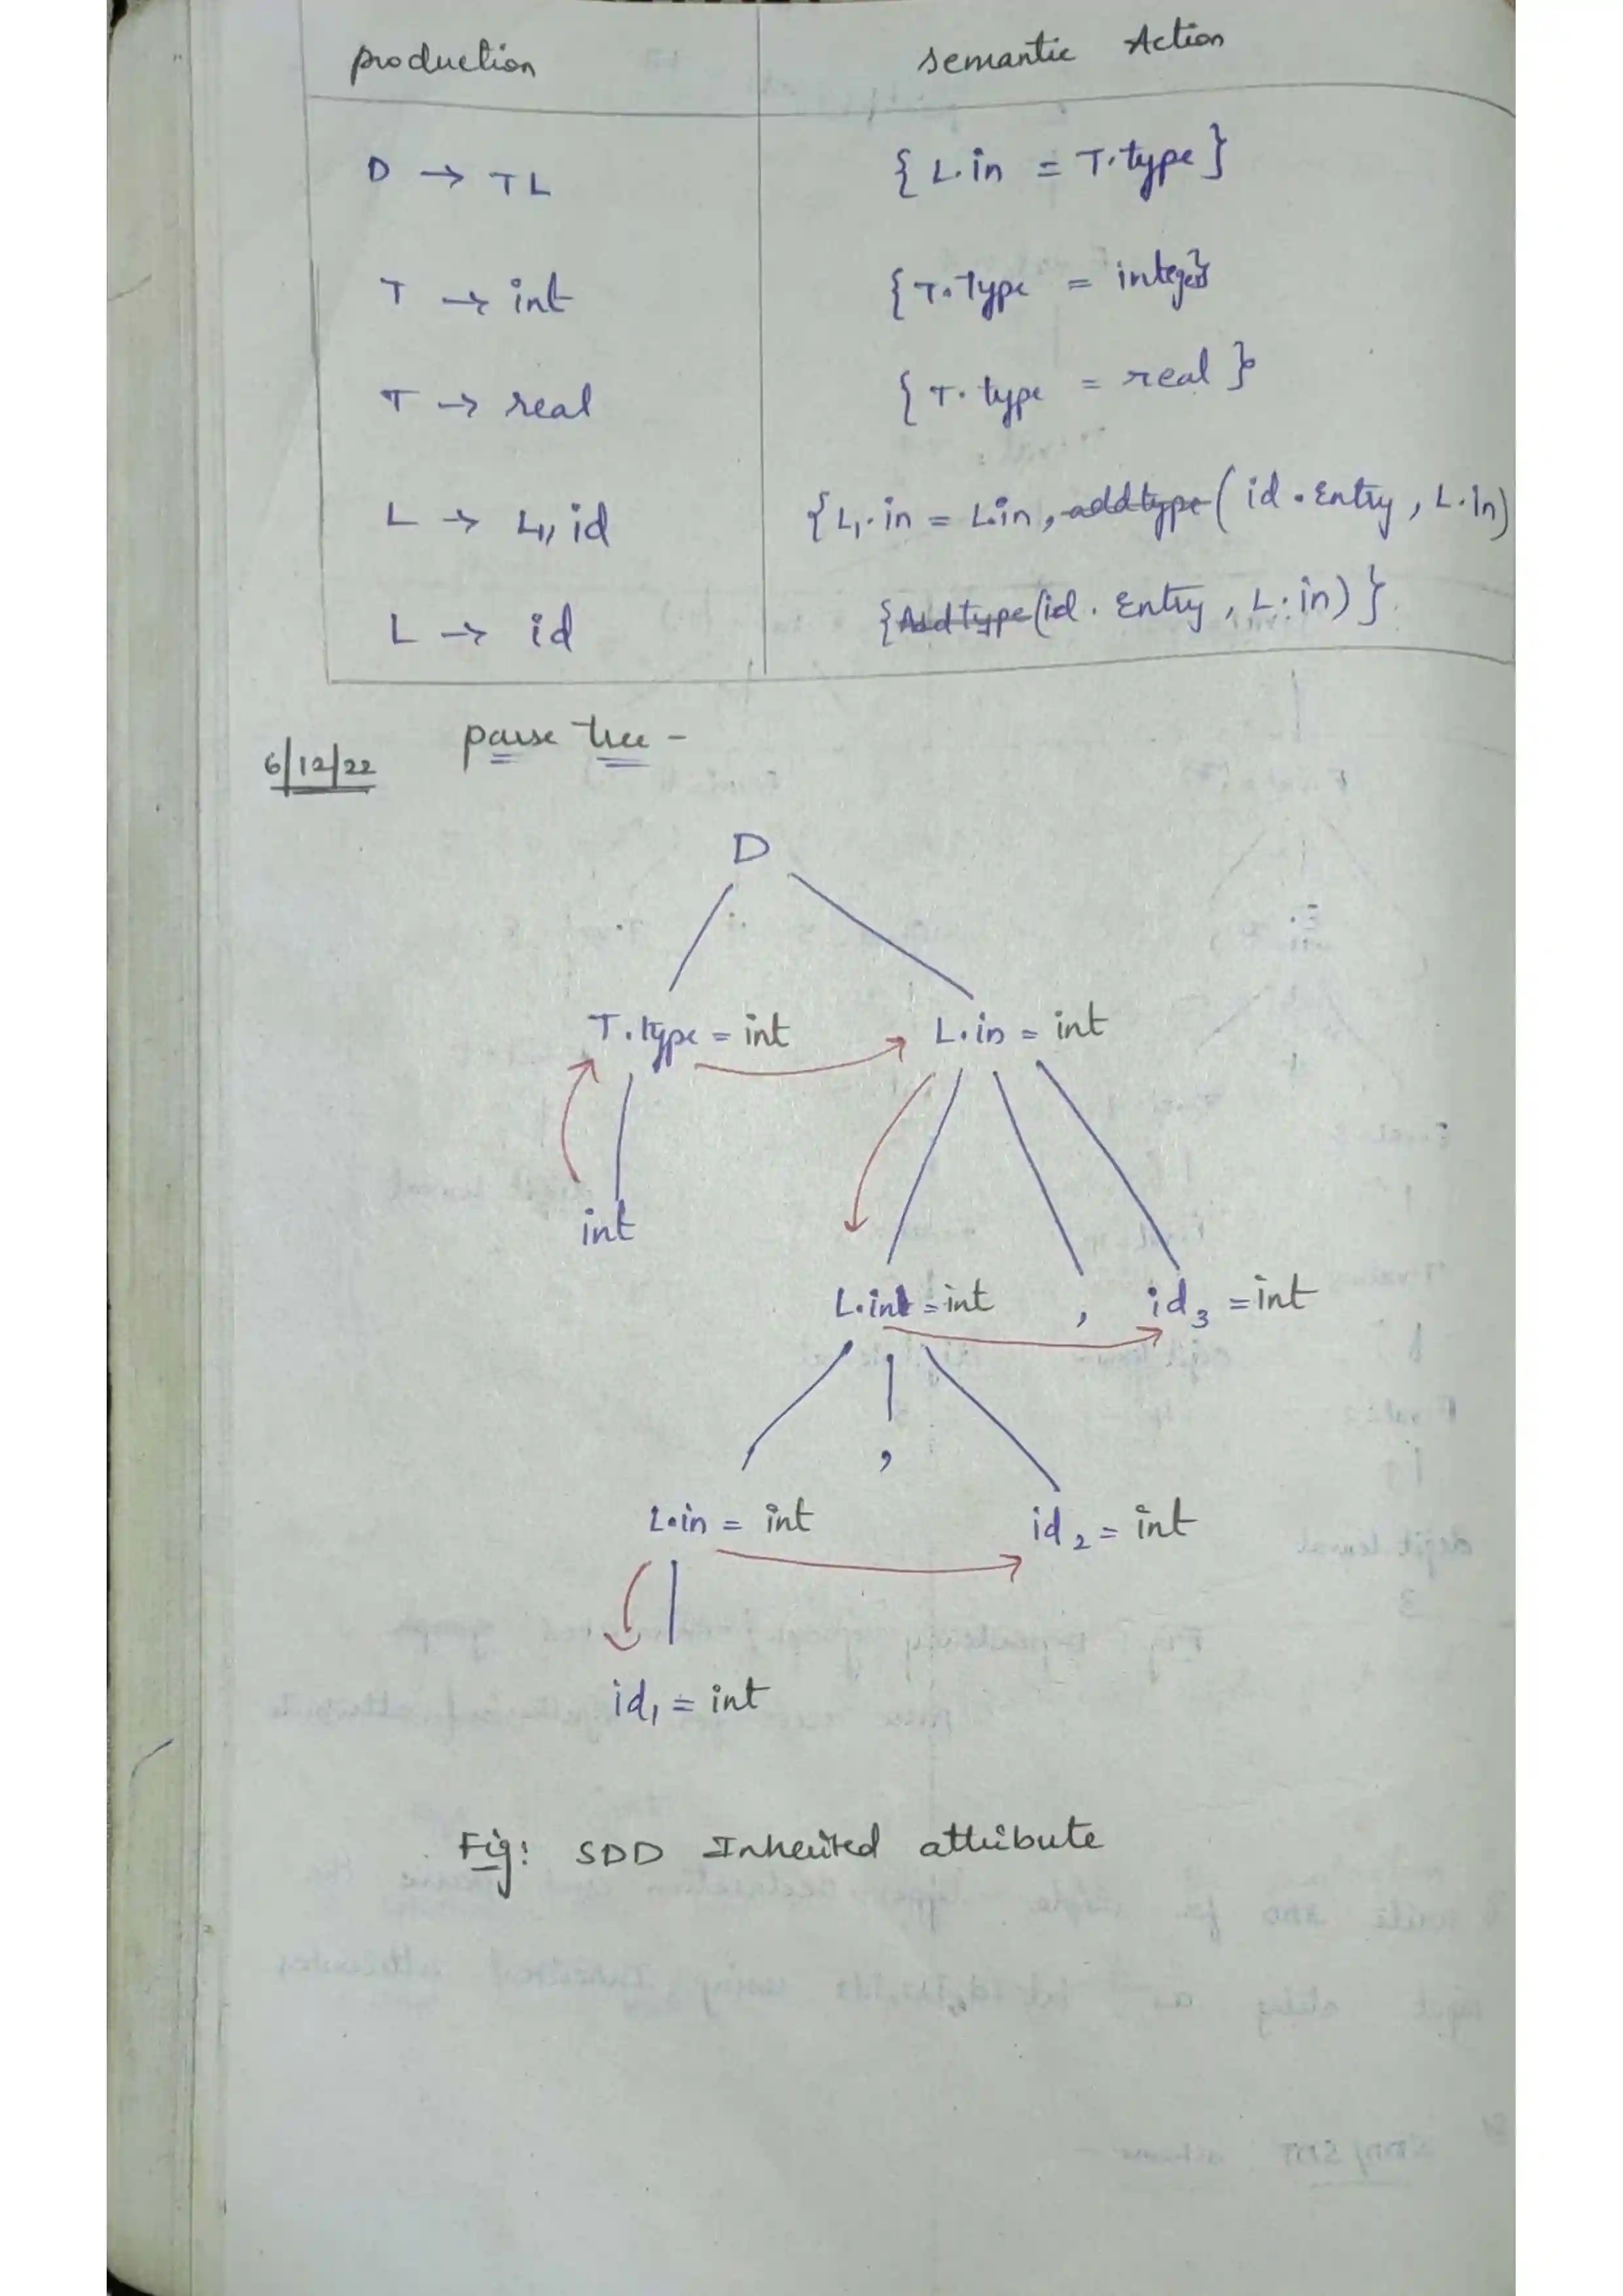 production semantic Action
D → TL { L.in = T.type }
T → int { T.Type = integer}
T → real { T.type = real }
L → L1, id { L1.in = L.in, addtype ( id.Entry, L.in)
L → id { Addtype (id. Entry, L.in) }
6/12/22 parse tree -
D
T.type = int L.in = int
int
L.in = int , id3 = int
,
L.in = int id2 = int
id1 = int
Fig: SDD Inherited attribute